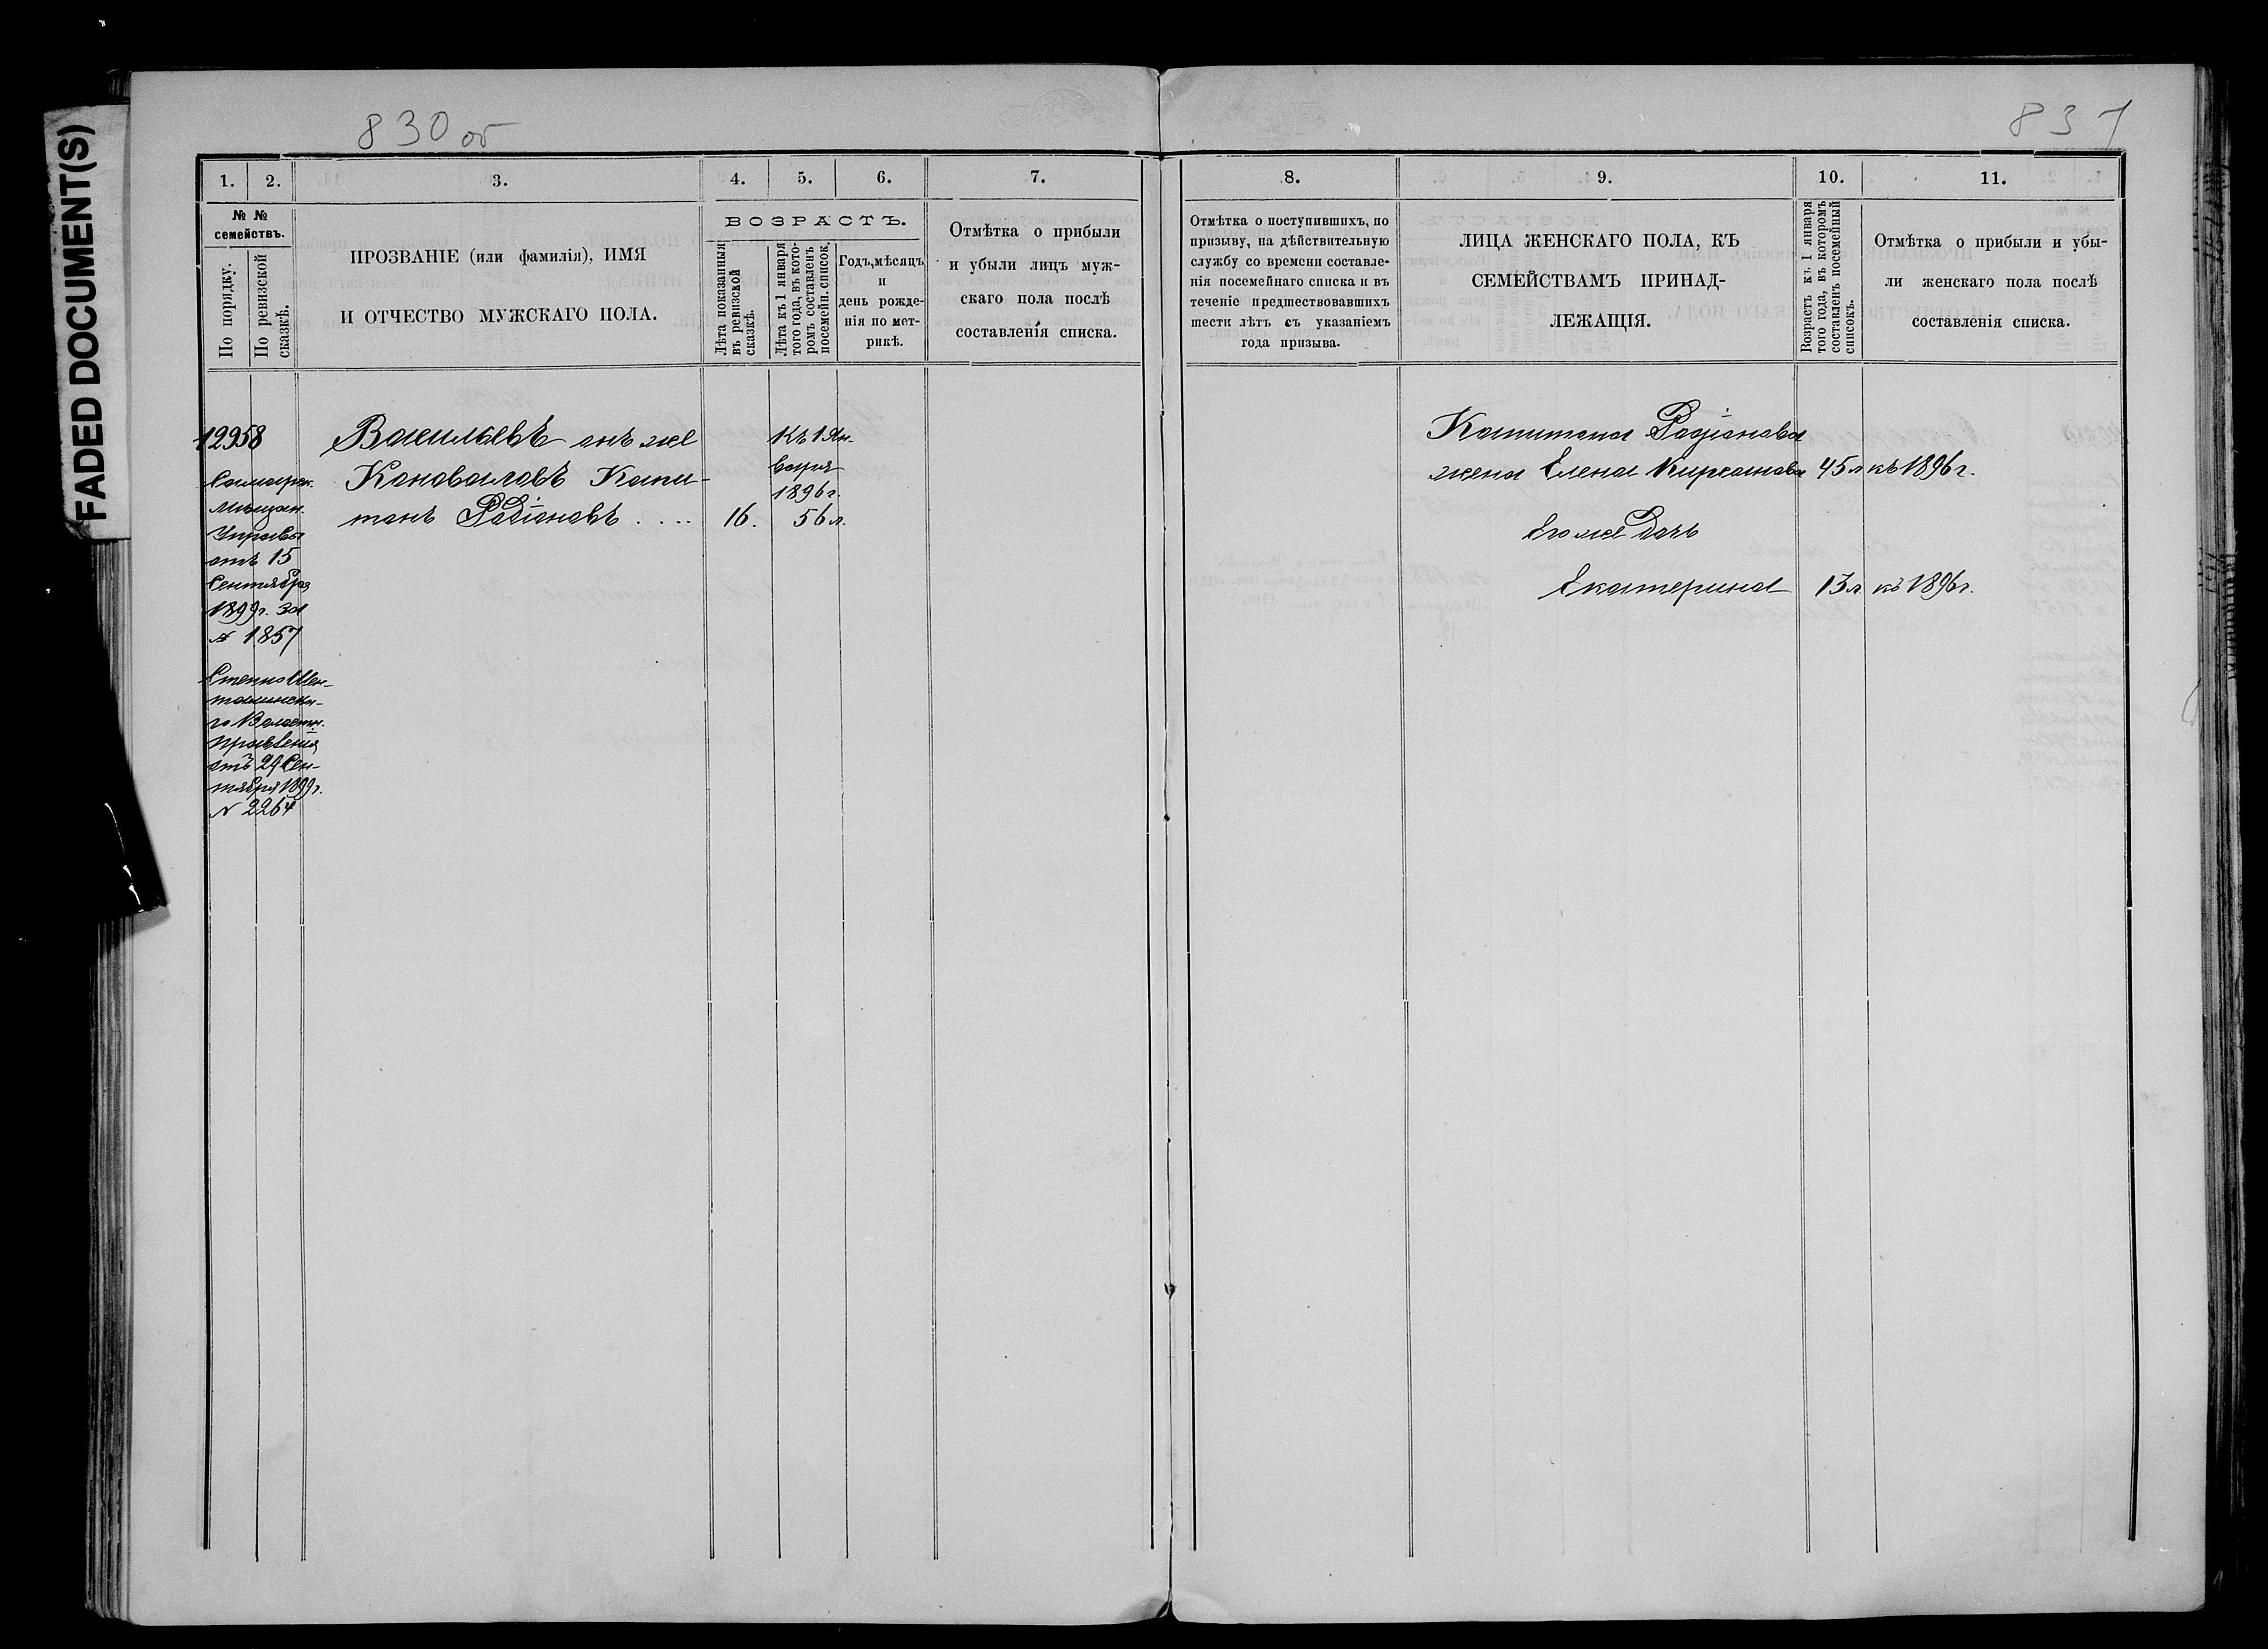 FADED DOCUMENT(S)
830 об
1.
2.
3.
4.
5.
6.
7.
№ №
семействъ.
По порядку.
По ревизской
сказкѣ.
ПРОЗВАНІЕ (или фамилія), ИМЯ
И ОТЧЕСТВО МУЖСКАГО ПОЛА.
ВОЗРАСТЪ.
Лѣта показанныя
въ ревизской
сказкѣ.
Лѣта къ 1 января
того года, въ кото-
ромъ составленъ
посемейн. список.
Годъ, мѣсяцъ
и
день рожде-
нія по мет-
рикѣ.
Отмѣтка о прибыли
и убыли лицъ муж-
скаго пола послѣ
составленія списка.
12958
Самарск.
мѣщан.
Управы
отъ 15
Сентября
1899г. за
№ 1857
Степно Шен-
талинска-
го Волостн.
правленія
отъ 29 Сен-
тября 1899г.
№ 2264
Васильевъ онъ же
Коноваловъ Капи-
тонъ Радіоновъ . . . .
16.
Къ 1 Ян-
варя
1896г.
56 л.
837
8.
9.
10.
11.
Отмѣтка о поступившихъ, по
призыву, на дѣйствительную
службу со времени составле-
нія посемейнаго списка и въ
теченіе предшествовавшихъ
шести лѣтъ съ указаніемъ
года призыва.
ЛИЦА ЖЕНСКАГО ПОЛА, КЪ
СЕМЕЙСТВАМЪ ПРИНАД-
ЛЕЖАЩІЯ.
Возрастъ къ 1 января
того года, въ которомъ
составленъ посемейный
списокъ.
Отмѣтка о прибыли и убы-
ли женскаго пола послѣ
составленія списка.
Капитона Радіонова
жена Елена Кирсанова 45 л къ 1896г.
Его же дочь
Екатерина 13 л. къ 1896г.